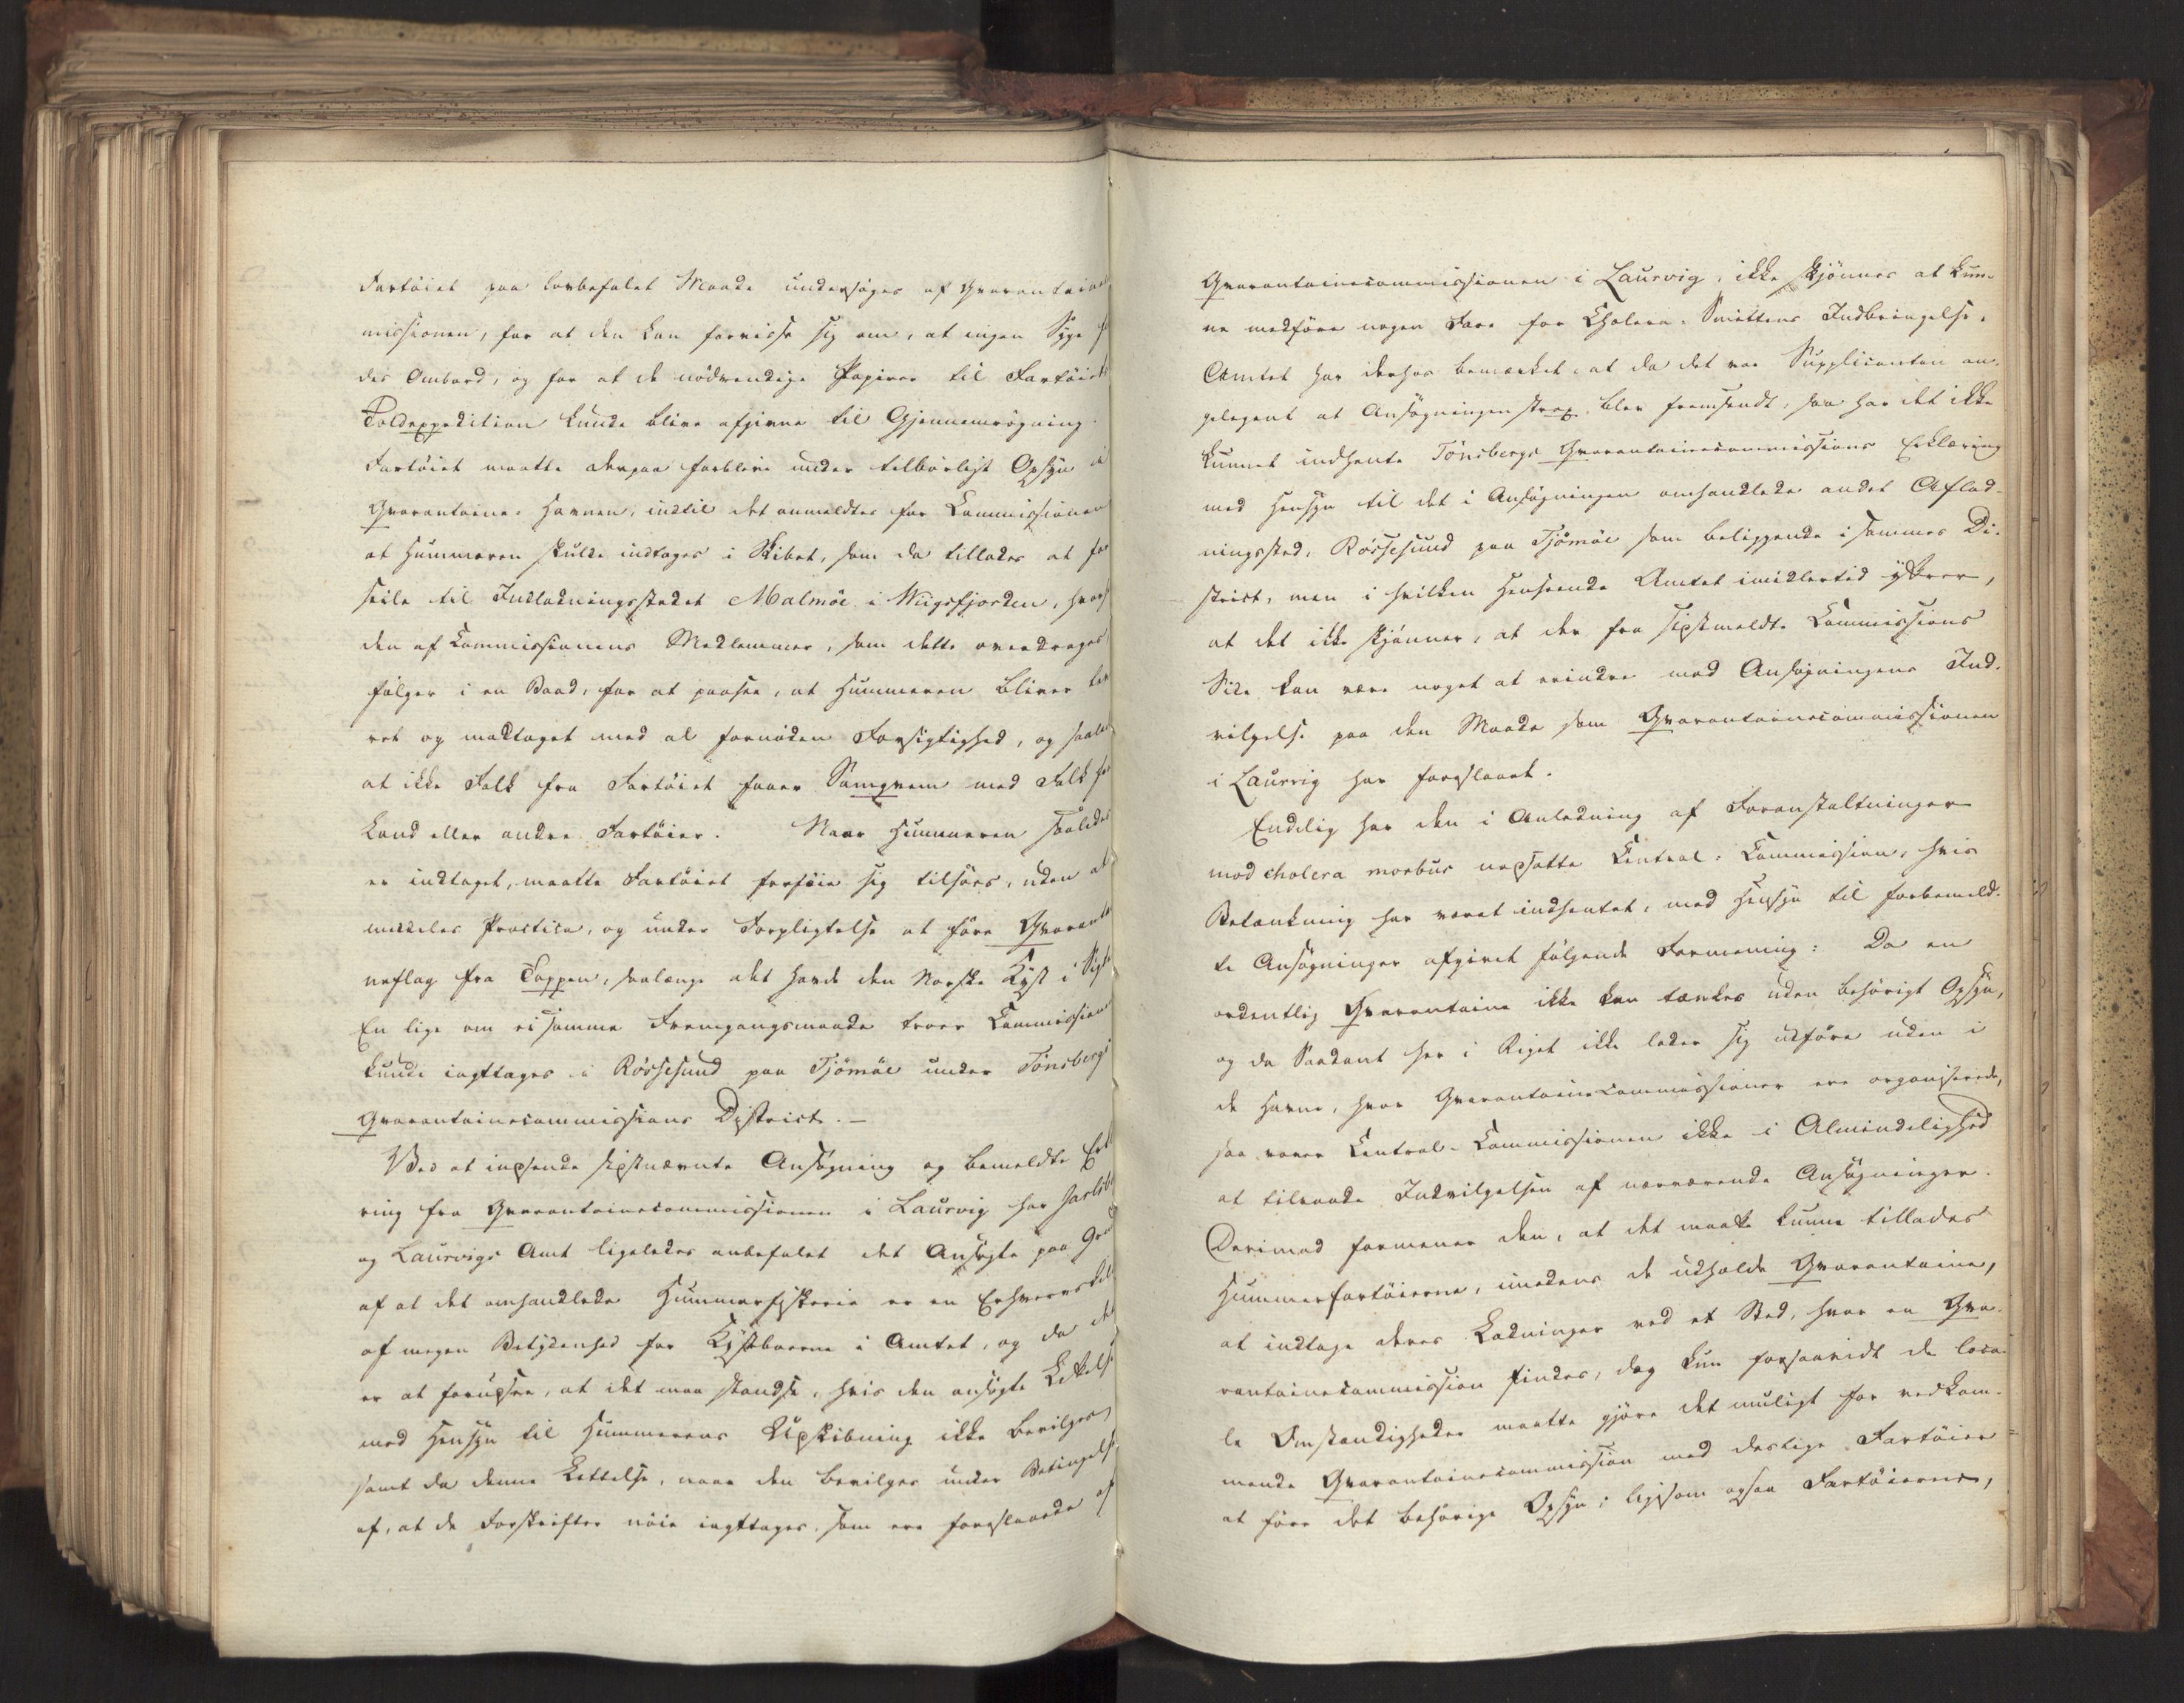 Fartöiet paa lovbefalet Maade undersøges af Qvarantaine
missionen, for at den kan forvisse sig om, at ingen Syge
des Ombord, og for at de nödvendige Papirer til Fartöiets
Toldexpedition kunde blive afgivne til Gjennemsøgning.
Fartöiet maatte derpaa forblive under tilbørligt Opsyn i
Qvarantaine-Havnen, indtil det anmeldtes for Commissionen
at Hummeren skulde indtages i Skibet, som da tillodes at
seile til Indladningsstedet Malmöe i Wiigsfjorden, hvor
den af Commissionens Medlemmer, som dette overdroges
følger i en Baad, for at paasee, at Hummeren bliver
ret og modtaget med al fornøden Forsigtighed, og saaledes
at ikke Folk fra Fartöiet faaer Samqvem med Folk
Land eller andre Fartöier. Naar Hummeren saaledes
er indtaget, maatte Fartöiet forføie sig tilsøes, uden at
meddeles Practica, og under Forpligtelse at føre Qvarantai
neflag fra Toppen, saalænge det havde den Norske Kyst i Sigte
En lige om ei samme Fremgangsmaade troer Commissionen
kunde iagttages i Røssesund paa Tjömöe under Tönsbergs
Qvarantainecommissions District.-
Ved at indsende sidstnævnte Ansøgning og bemeldte Erk
ring fra Qvarantainecommissionen i Laurvig har Jarlsb
og Laurvigs Amt ligeledes anbefalet det Ansøgte paa Grund
af at det omhandlede Hummerfiskerie er en Erhvervskilde
af megen Betydenhed for Kystboerne i Amtet, og da det
er at forudsee, at det maa standse, hvis den ansøgte Lettelse
med Hensyn til Hummerens Udskibning ikke bevilges,
samt da denne Lettelse, naar den bevilges under Betingelse
af, at de Forskrifter nöie iagttages, som ere foreslaaede af
Qvarantainecommissionen i Laurvig, ikke skjönnes at kun-
ne medføre nogen Fare for Cholera-Smittens Indbringelse.
Amtet har derhos bemærket, at da det var Supplicanten an-
gelegent at Ansøgningen strax blev fremsendt, saa har det ikke
kunnet indhente Tönsbergs Qvarantainecommissions Erklæring
med Hensyn til det i Ansøgningen omhandlede andet Aflad-
ningssted, Røssesund paa Tjömöe som beliggende i sammes Di-
strict, men i hvilken Henseende Amtet imidlertid yttrer,
at det ikke skjönner, at der fra sidstmeldte Commissions
Side kan være noget at erindre mod Ansøgningens Ind-
vilgelse paa den Maade som Qvarantainecommissionen
i Laurvig har foreslaaet.
Endelig har den i Anledning af Foranstaltninger
mod cholera morbus nedsatte Central-Commission, hvis
Betænkning har været indhentet, med Hensyn til forbemeld-
te Ansøgninger afgivet følgende Formening: Da en
ordentlig Qvarantaine ikke kan tænkes uden behørigt Opsyn,
og da Saadant her i Riget ikke lader sig udføre uden i
de Havne, hvor Qvarantainecommissioner ere organiserede,
saa vover Central-Commissionen ikke i Almindelighed
at tilraade Indvilgelsen af nærværende Ansøgninger.
Derimod formener den, at det maatte kunne tillades
Hummerfartöierne, imedens de udholde Qvarantaine,
at indtage deres Ladninger ved et Sted, hvor en Qva-
rantainecommission findes, dog kun forsaavidt de loca-
le Omstændigheder maatte gjöre det muligt for vedkom-
mende Qvarantainecommission med deslige Fartöier
at føre det behørige Opsyn; ligesom ogsaa Fartöierne,